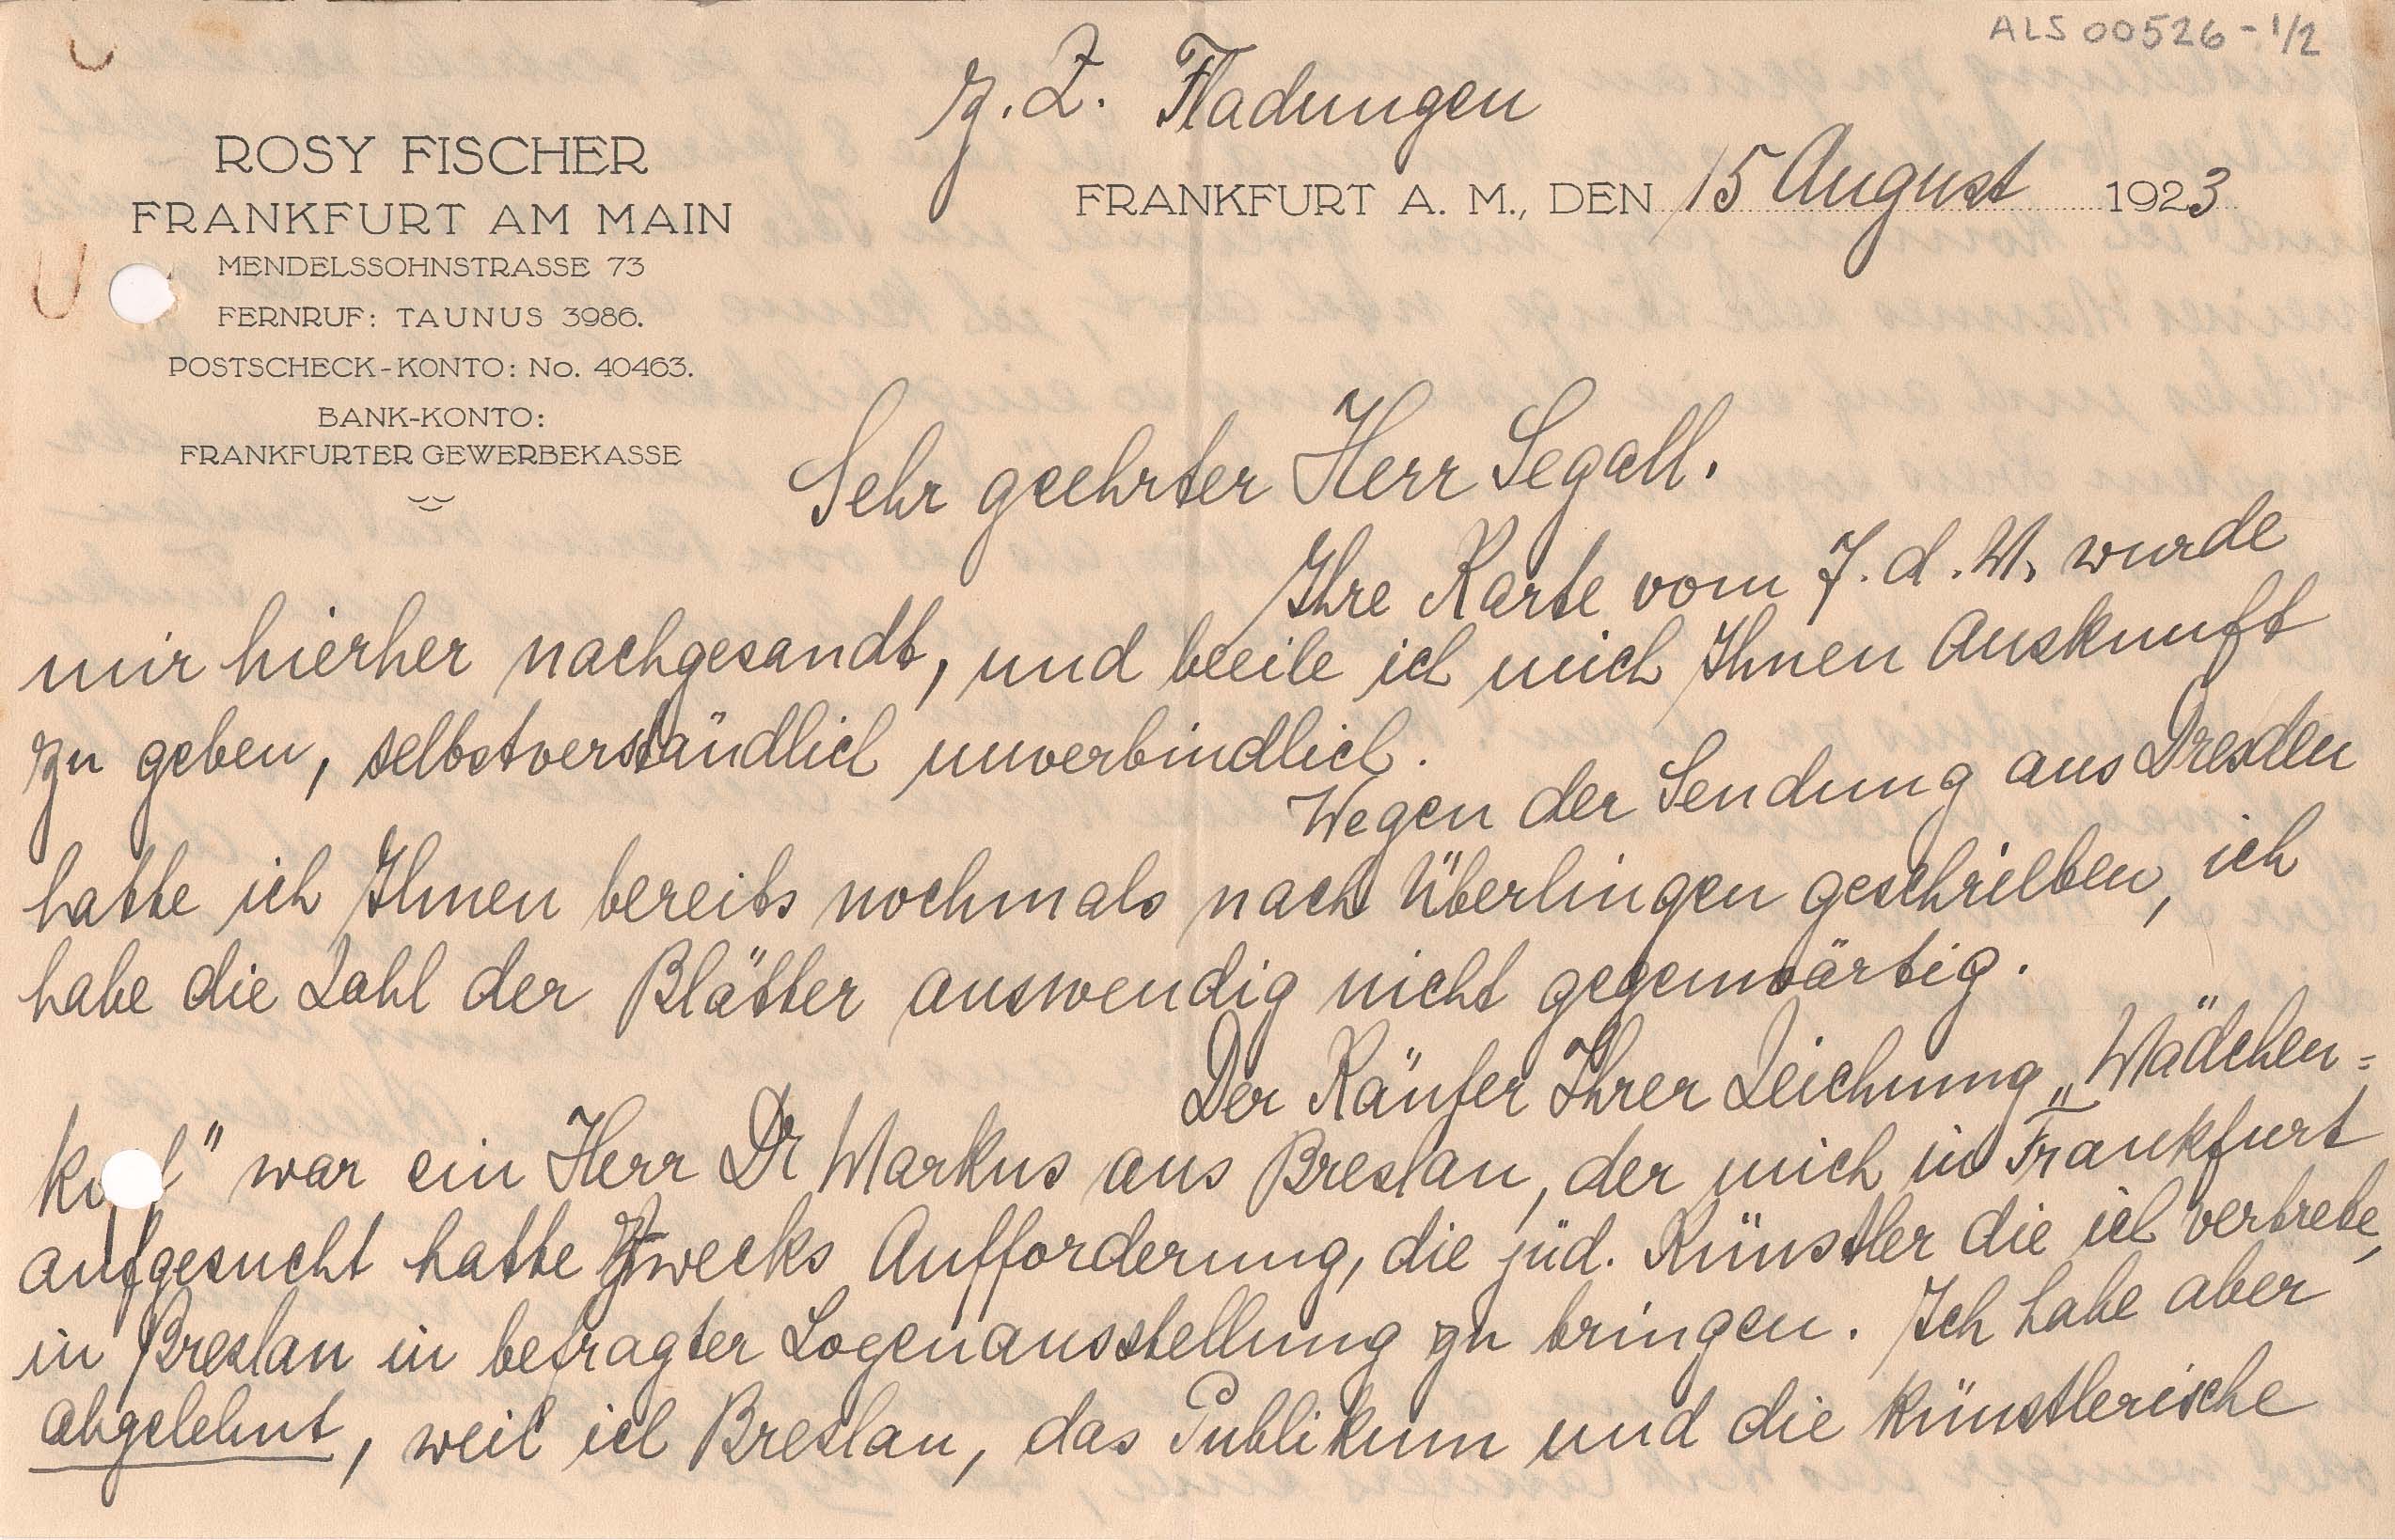 ALS 00526-1/2
z. Z. Fladungen
ROSY FISCHER
FRANKFURT AM MAIN
MENDELSSOHNSTRASSE 73
FERNRUF: TAUNUS 3986.
POSTSCHECK-KONTO: No. 40463.
BANK-KONTO:
FRANKFURTER GEWERBEKASSE
FRANKFURT A. M., DEN 15 August 1923
Sehr geehrter Herr Segall.
Ihre Karte vom 7. d. M. wurde
mir hierher nachgesandt, und beeile ich mich Ihnen Auskunft
zu geben, selbstverständlich unverbindlich.
Wegen der Sendung aus Dresden
hatte ich Ihnen bereits nochmals nach Überlingen geschrieben, ich
habe die Zahl der Blätter auswendig nicht gegenwärtig.
Der Käufer Ihrer Zeichnung „Mädchen=
kopf" war ein Herr Dr Markus aus Breslau, der mich in Frankfurt
aufgesucht hatte zwecks Aufforderung, die jüd. Künstler die ich vertrete,
in Breslau in befragter Logenausstellung zu bringen. Ich habe aber
abgelehnt, weil ich Breslau, das Publikum und die künstlerische